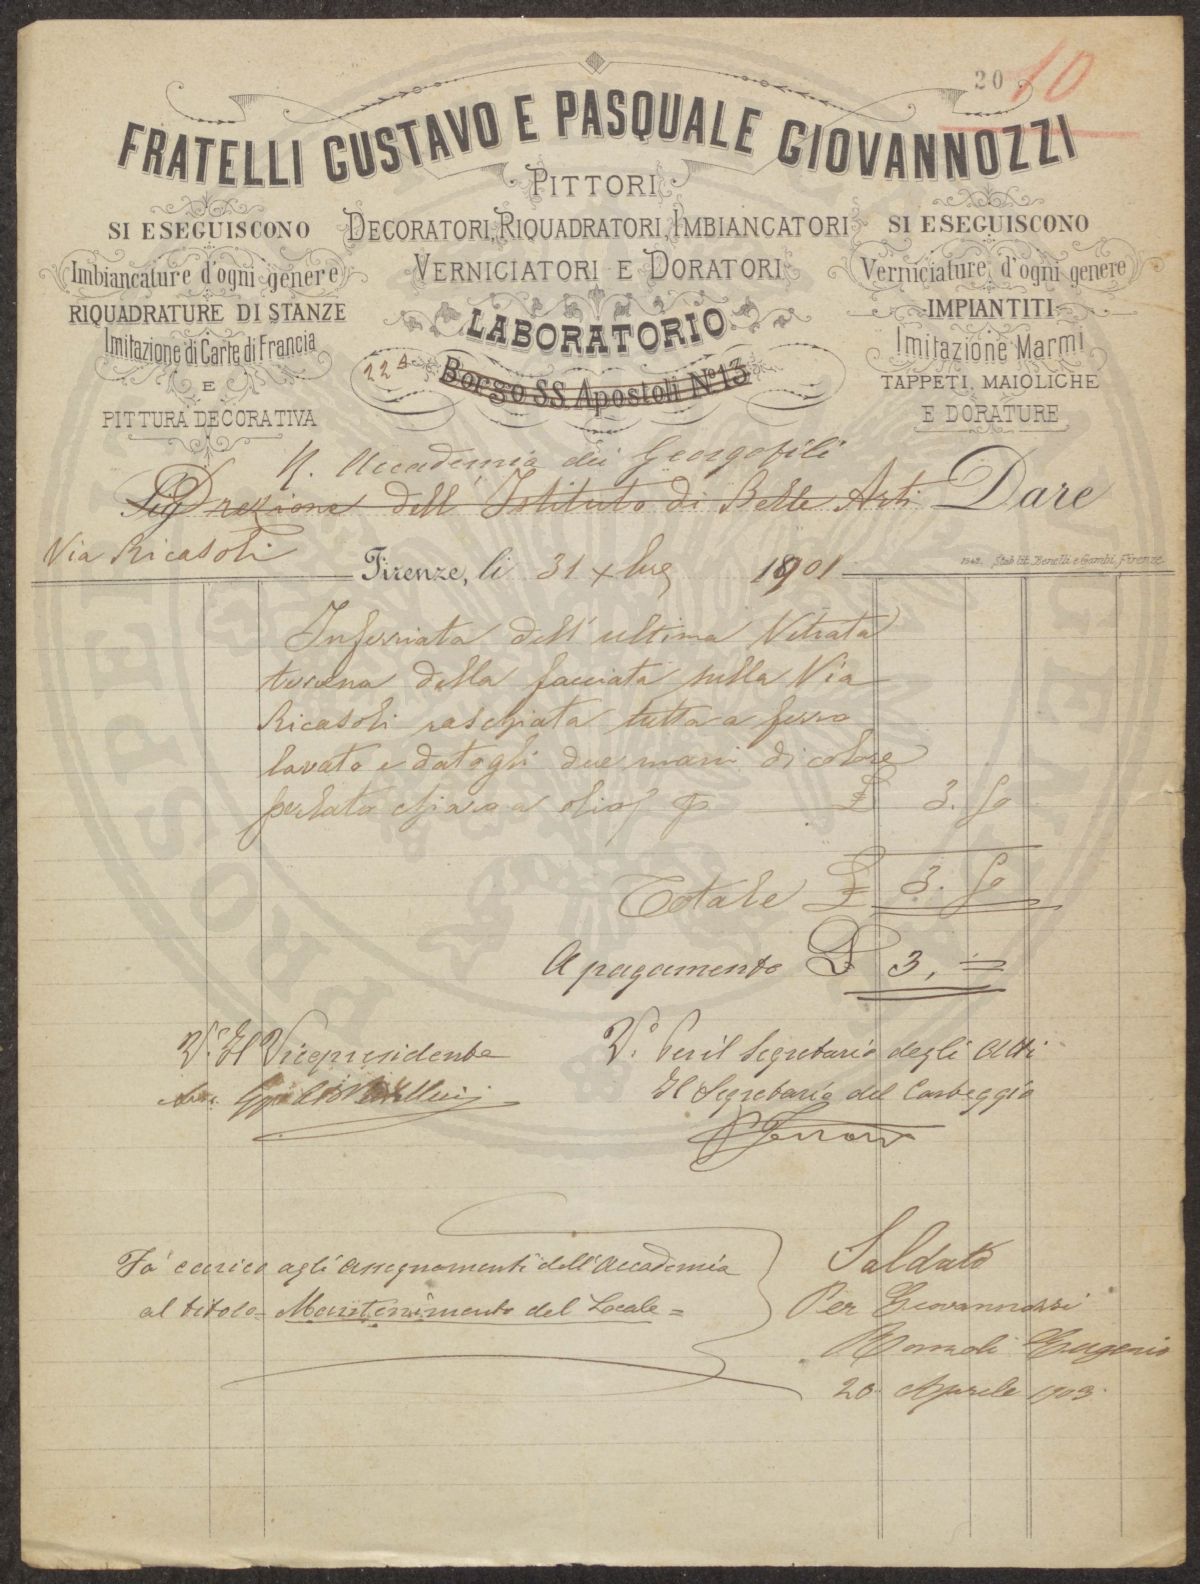 20 10
FRATELLI GUSTAVO E PASQUALE GIOVANNOZZI
PITTORI
DECORATORI, RIQUADRATORI, IMBIANCATORI
VERNICIATORI E DORATORI
LABORATORIO
22A
Borgo SS. Apostoli No 13
SI ESEGUISCONO
Imbiancature d'ogni genere
RIQUADRATURE DI STANZE
Imitazione di Carte di Francia
E
PITTURA DECORATIVA
SI ESEGUISCONO
Verniciature d'ogni genere
IMPIANTITI
Imitazione Marmi
TAPPETI, MAIOLICHE
E DORATURE
R. Accademia dei Georgofili
Direzione dell' Istituto di Belle Arti Dare
Via Ricasoli
Firenze, li 31 Xbre 1901
Stab. lit. Benelli e Gambi, Firenze
Inferriata dell' ultima Vetrata
terrena della facciata sulla Via
Ricasoli raschiata tutta a ferro
lavato e datogli due mani di colore
perlato chiaro a olio £ 3.50
Totale £ 3.50
A pagamento £ 3,=
V.° Il Vicepresidente
V.° Per il Segretario degli Atti
Il Segretario del Carteggio
Fa carico agli assegnamenti dell' Accademia
al titolo = Mantenimento del Locale =
Saldato
Per Giovannozzi
Eugenio
20 Aprile 1903